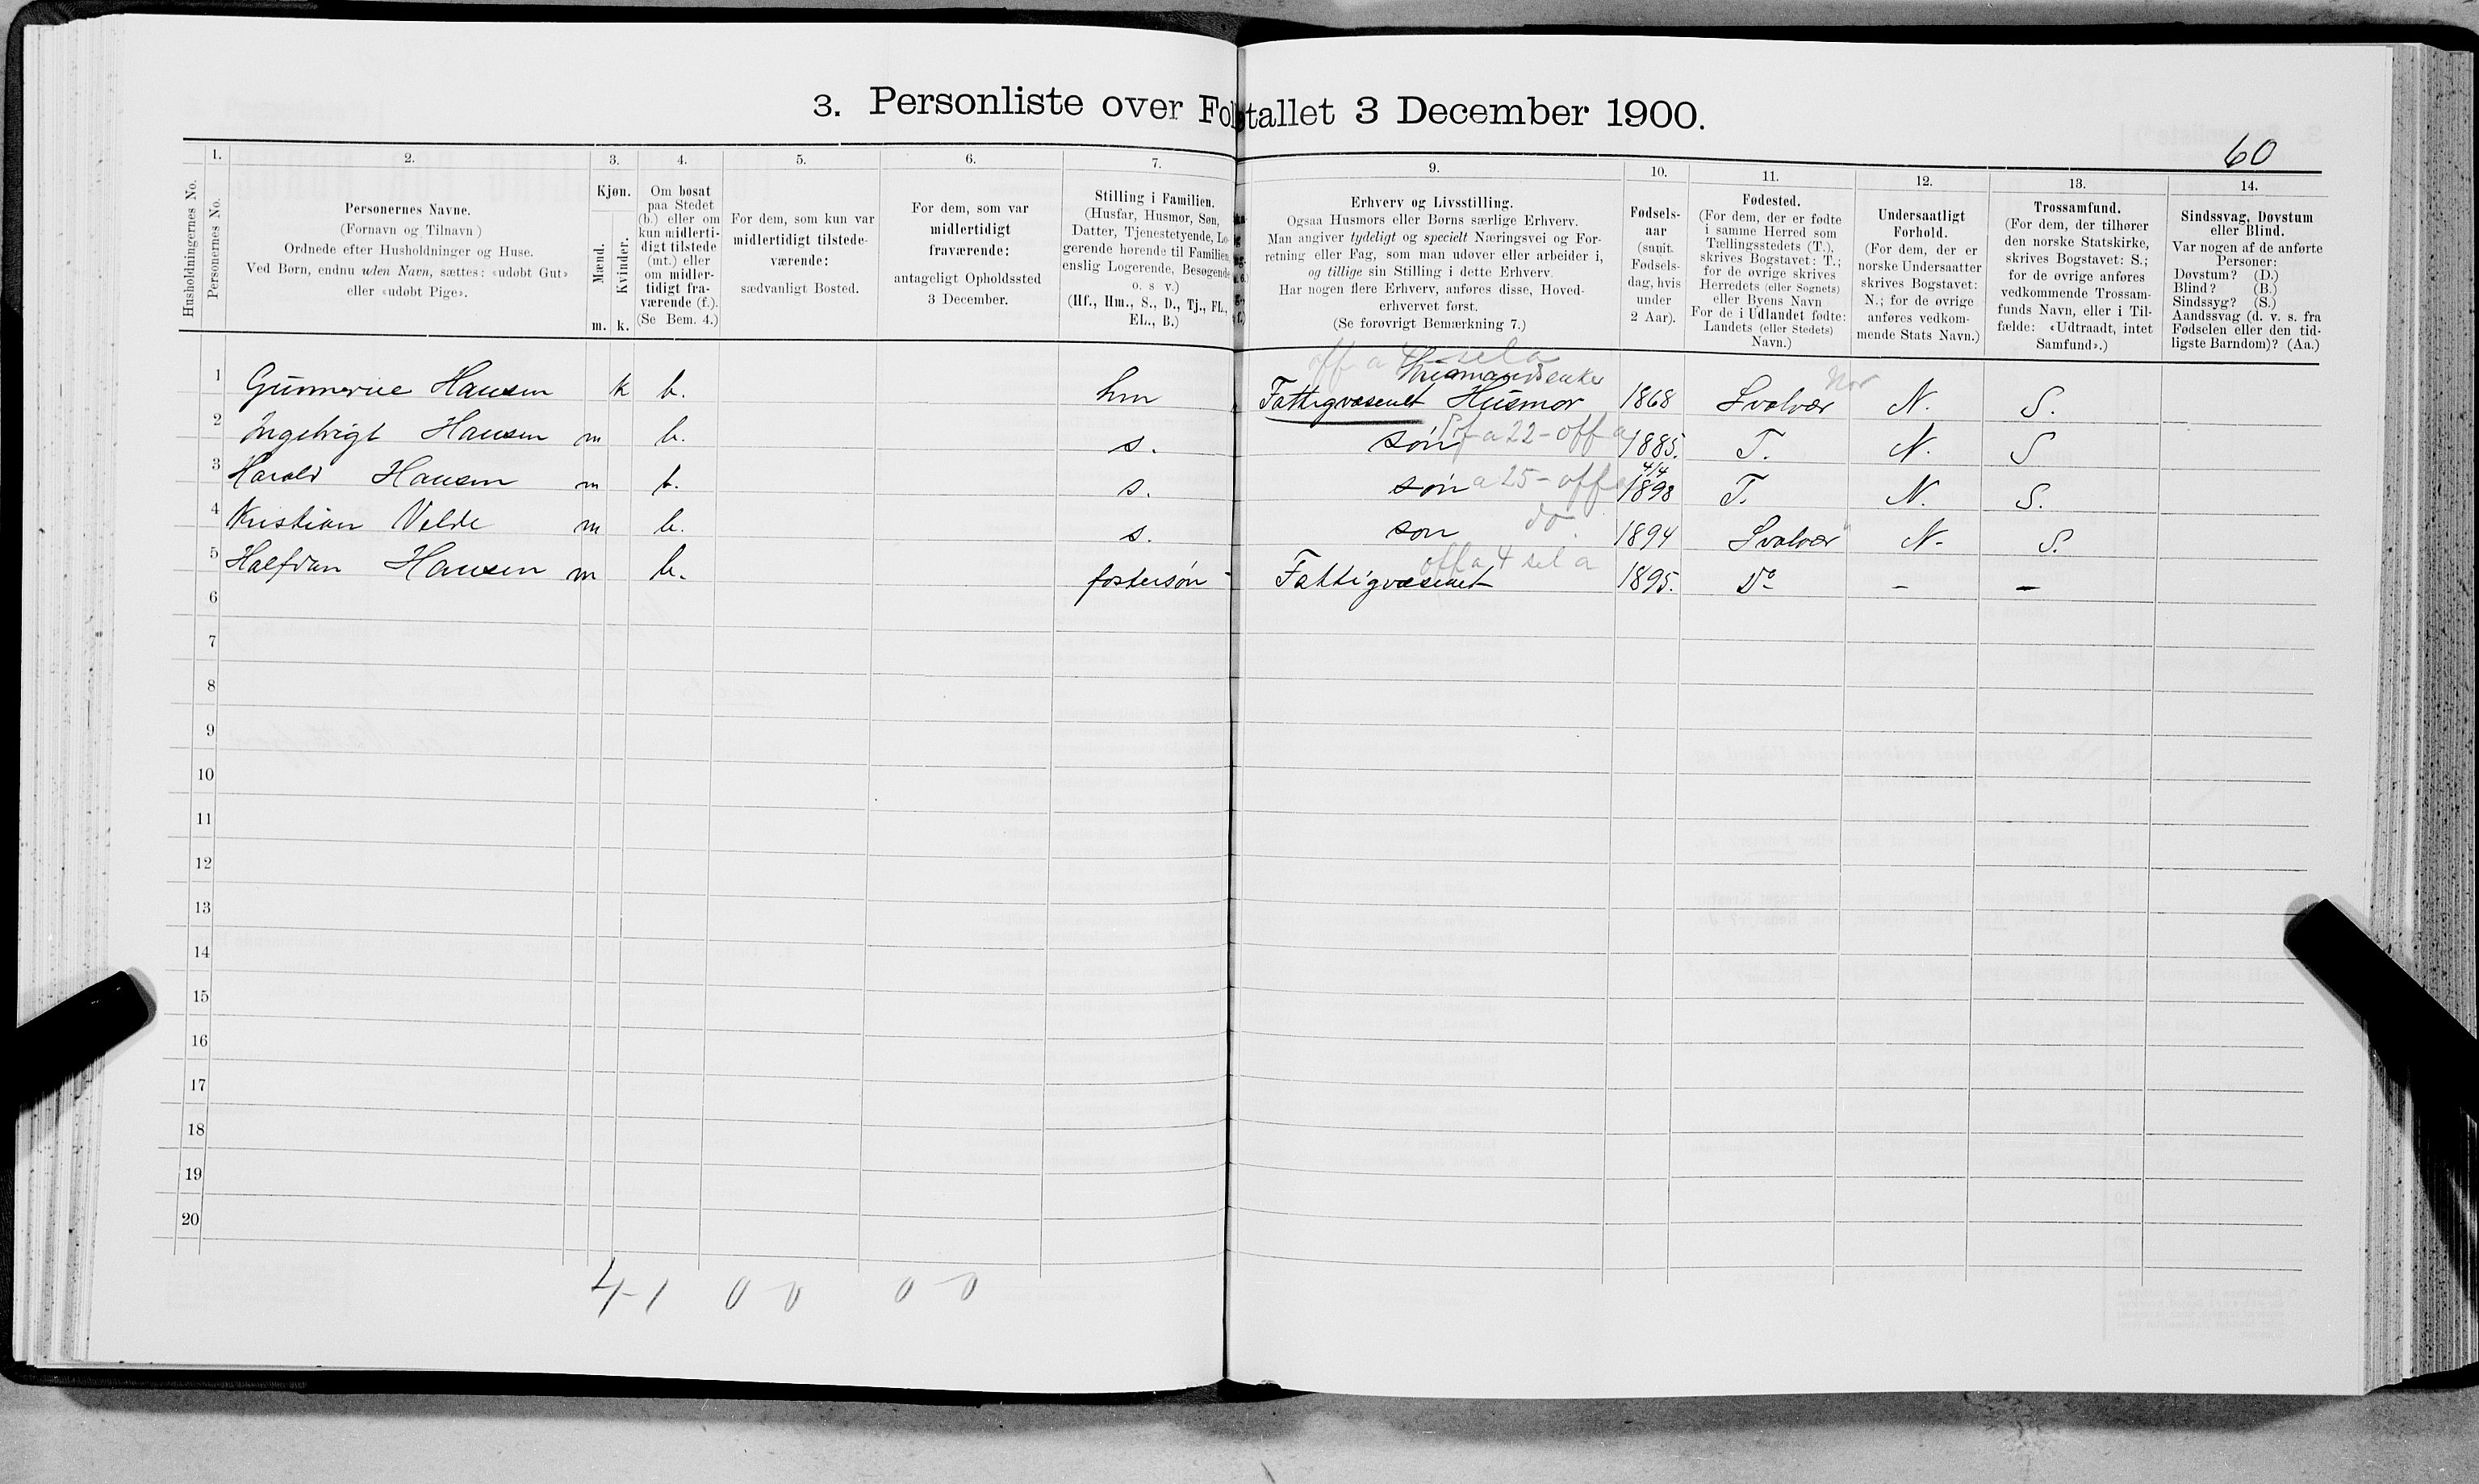 3. Personliste over Folketallet 3 December 1900.
60
1. 2. 3. 4. 5. 6. 7. 9. 10. 11. 12. 13. 14.
Husholdningernes No.
Personernes No.
Personernes Navne.
(Fornavn og Tilnavn)
Ordnede efter Husholdninger og Huse.
Ved Børn, endnu uden Navn, sættes: «udøbt Gut»
eller «udøbt Pige».
Kjøn.
Mænd. Kvinder.
m. k.
Om bosat
paa Stedet
(b.) eller om
kun midlerti-
digt tilstede
(mt.) eller
om midler-
tidigt fra-
værende (f.).
(Se Bem. 4.)
For dem, som kun var
midlertidigt tilstede-
værende:
sædvanligt Bosted.
For dem, som var
midlertidigt
fraværende:
antageligt Opholdssted
3 December.
Stilling i Familien.
(Husfar, Husmor, Søn,
Datter, Tjenestetyende, Lo-
gerende hørende til Familien,
enslig Logerende, Besøgende
o. s. v.)
(Hf., Hm., S., D., Tj., FL.,
EL., B.)
Erhverv og Livsstilling.
Ogsaa Husmors eller Børns særlige Erhverv.
Man angiver tydeligt og specielt Næringsvei og For-
retning eller Fag, som man udover eller arbeider i,
og tillige sin Stilling i dette Erhverv.
Har nogen flere Erhverv, anføres disse, Hoved-
erhvervet først.
(Se forøvrigt Bemærkning 7.)
Fødsels-
aar
(samt.
Fødsels-
dag, hvis
under
2 Aar).
Fødested.
(For dem, der er fødte
i samme Herred som
Tællingsstedets (T.),
skrives Bogstavet: T.;
for de øvrige skrives
Herredets (eller Sognets)
eller Byens Navn
For de i Udlandet fødte:
Landets (eller Stedets)
Navn.)
Undersaatligt
Forhold.
(For dem, der er
norske Undersaatter
skrives Bogstavet:
N.; for de øvrige
anføres vedkom-
mende Stats Navn.)
Trossamfund.
(For dem, der tilhører
den norske Statskirke,
skrives Bogstavet: S.;
for de øvrige anføres
vedkommende Trossam-
funds Navn, eller i Til-
fælde: «Udtraadt, intet
Samfund».)
Sindssvag, Døvstum
eller Blind.
Var nogen af de anførte
Personer:
Døvstum? (D.)
Blind? (B.)
Sindssyg? (S.)
Aandssvag (d. v. s. fra
Fødselen eller den tid-
ligste Barndom)? (Aa.)
off a 4 sel a
husmandsenke
1 Gunnerine Hansen k b. hm Fattigvæsenet Husmor 1868 Svolvær Nor N. S.
2 Ingebrigt Hansen m b. s. søn a 22 - off a 1885. T. N. S
4/4
3 Harald Hansen m b. s. søn a 25 - off 1898 T. N. S.
4 Kristian Velde m b. s. søn do 1894 Svolvær N. S.
off a 4 sel a
5 Halfdan Hansen m b. fostersøn - Fattigvæsenet 1895. Do - -
6
7
8
9
10
11
12
13
14
15
16
17
18
19
20
4-1 0 0 0 0